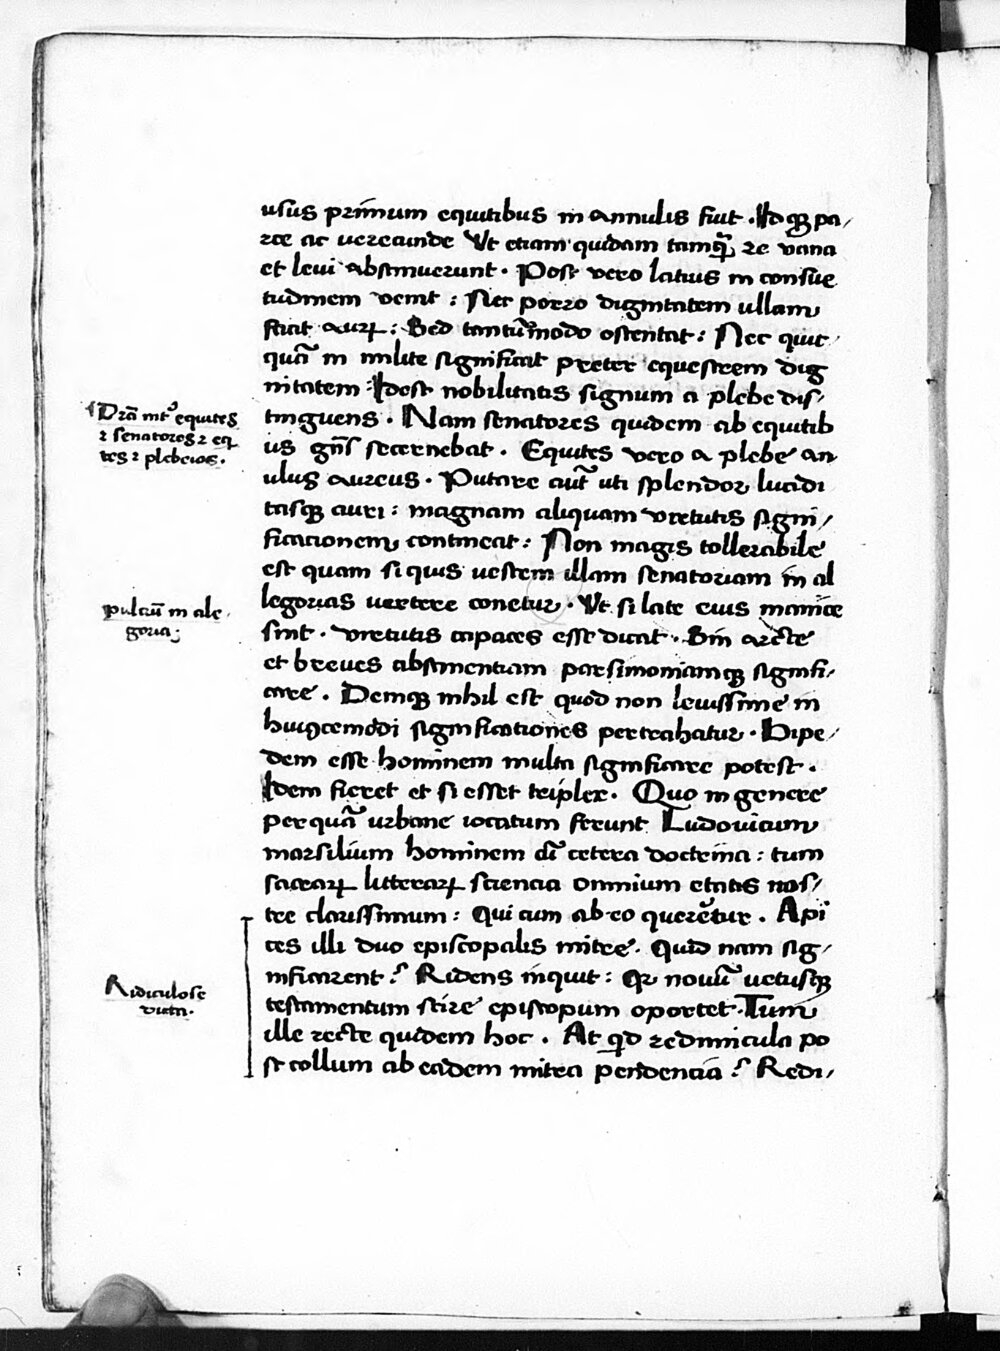 usus primum equitibus in annulis fuit . Idqꝫ pa/
rce ac verecunde Vt etiam quidam tamqͣ re vana
et levi abstinuerunt . Post vero latius in consue
tudinem venit : Nec porro dignitatem ullam
facit auꝝ : Sed tantūmodo ostentat : Nec quit
quā in milite significat preter equestrem dig
nitatem Idest nobilitatis signum a plebe dis/
tinguens . Nam senatores quidem ab equitib
us gn̄s secernebat . Equites vero a plebe an
ulus aureus . Putare aut̄ uti splendor lucidi
tasqꝫ auri : magnam aliquam virtutis signi/
ficationem contineat : Non magis tollerabile
est quam si quis vestem illam senatoriam in al
legorias vertere conetur . Vt si late eius manice
sint . virtutis capaces esse dicat . Sin arcte
et breves abstinentiam parsimoniamqꝫ signifi/
care . Deniqꝫ nihil est quod non levissime in
huiꝯcemodi significationes pertrahatur . Bipe/
dem esse hominem multa significare potest .
Idem fieret et si esset triplex . Quo in genere
per quā urbane iocatum ferunt Ludovicum
marsilium hominem cū cetera doctrina : tum
sacraꝝ litteraꝝ sciencia omnium etatis nos/
tre clarissimum : Qui cum ab eo querētur . Api
ces illi duo episcopalis mitre . Quid nam sig/
nificarent ? Ridens inquit : Qꝛ novū vetusqꝫ
testamentum scire episcopum oportet . Tum
ille recte quidem hoc . At qͥd redimicula po
st collum ab eadem mitra pendencia ? Redi/
Dr̄a int̄ equites
⁊ senatores ⁊ eq
tes ⁊ plebeios .
pulcrū in ale
goria;
Ridiculose
dicta .